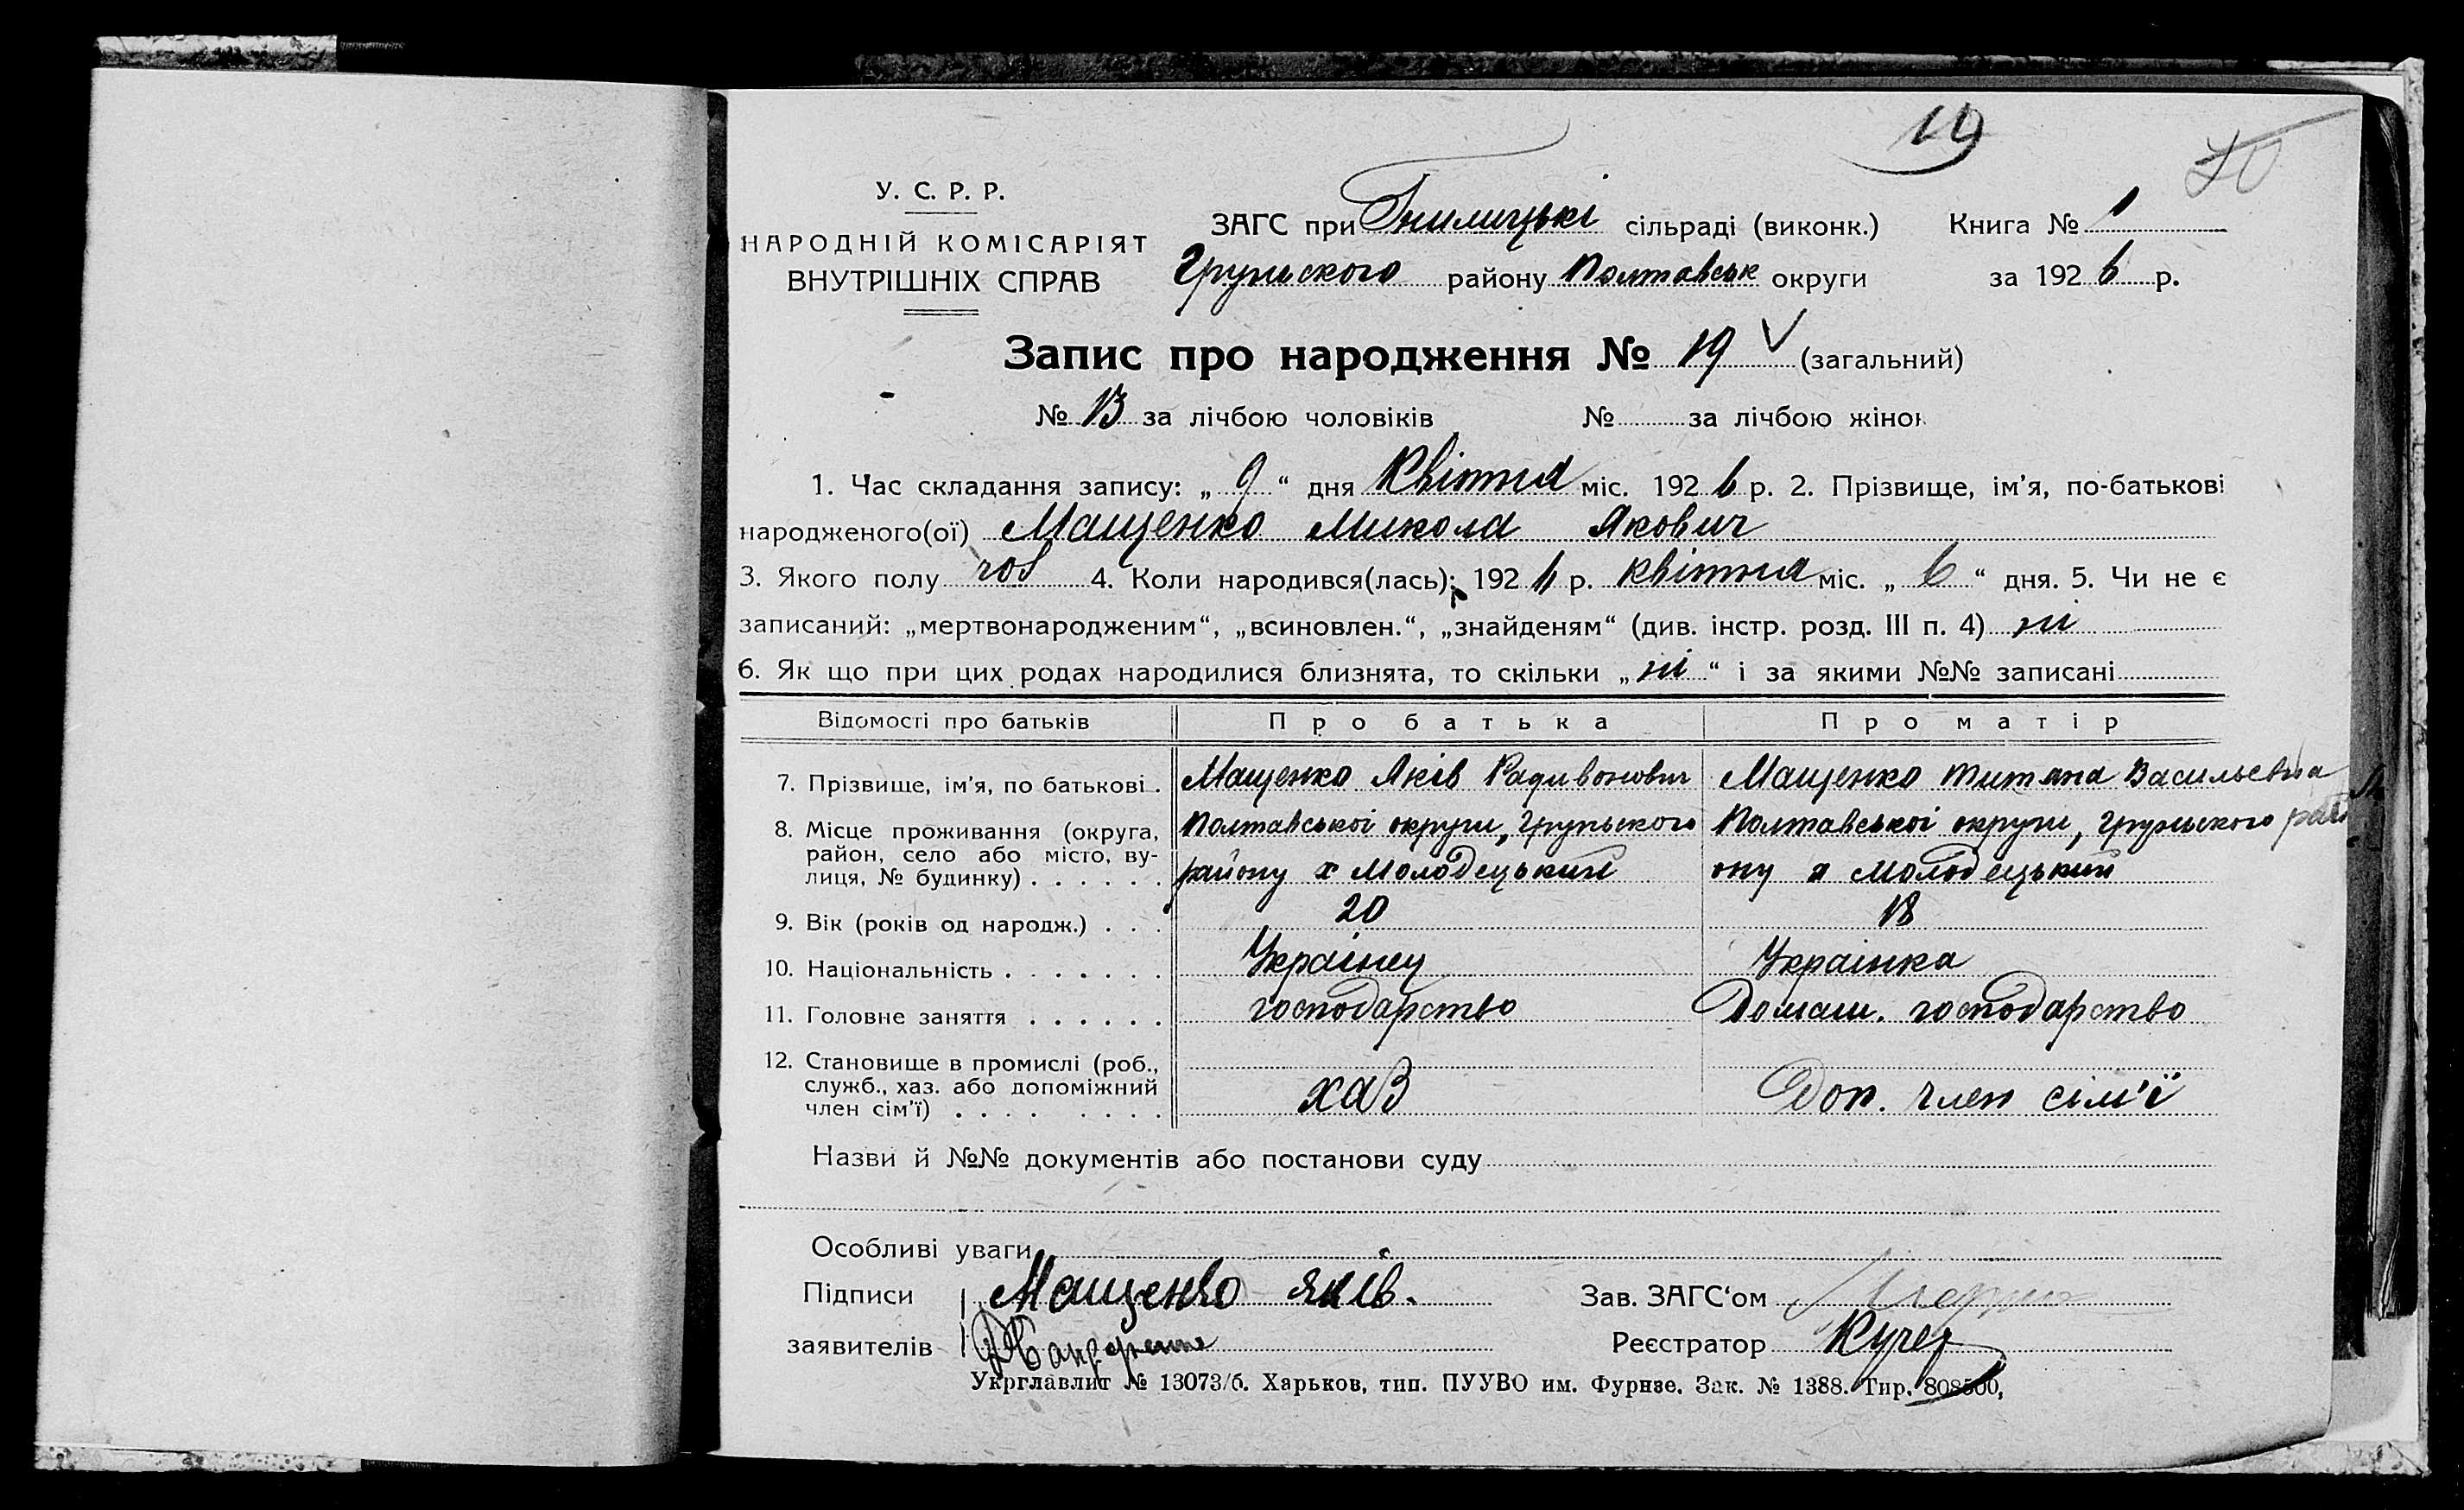 19
70
У. С. Р. Р.
НАРОДНІЙ КОМІСАРІЯТ
ВНУТРІШНІХ СПРАВ
ЗАГС при Гнилицькі сільраді (виконк.) Книга № 1
Груньского району Полтавськ округи за 1926 р.
Запис про народження № 19 (загальний)
№ 13 за лічбою чоловіків № за лічбою жінок
1. Час складання запису: „ 9 “ дня Квітня міс. 1926 р. 2. Прізвище, ім’я, по-батькові
народженого(ої) Мащенко Микола Якович
3. Якого полу чол 4. Коли народився(лась): 1926 р. квітня міс. „ 6 “ дня. 5. Чи не є
записаний: „мертвонародженим“, „всиновлен.“, „знайденям“ (див. інстр. розд. III п. 4) ні
6. Як що при цих родах народилися близнята, то скільки „ ні “ і за якими №№ записані
Відомості про батьків Про батька Про матір
7. Прізвище, ім’я, по батькові . Мащенко Яків Радивонович Мащенко Титяна Васильевна
8. Місце проживання (округа, Полтавської округи, Груньского Полтавської округи, Груньского рай
район, село або місто, ву-
лиця, № будинку) . . . . . . району х Молодецький ону х Молодецький
9. Вік (років од народж.) . . . 20 18
10. Національність . . . . . . . Українец Українка
11. Головне заняття . . . . . . господарство Домаш. господарство
12. Становище в промислі (роб.,
служб., хаз. або допоміжний
член сім’ї) . . . . . . . . хаз Доп. член сім’ї
Назви й №№ документів або постанови суду
Особливі уваги
Підписи Мащенко Яків. Зав. ЗАГС‘ом
заявителів Реєстратор Кучер
Укрглавлит № 13073/б. Харьков, тип. ПУУВО им. Фурнзе. Зак. № 1388. Тир. 808500,